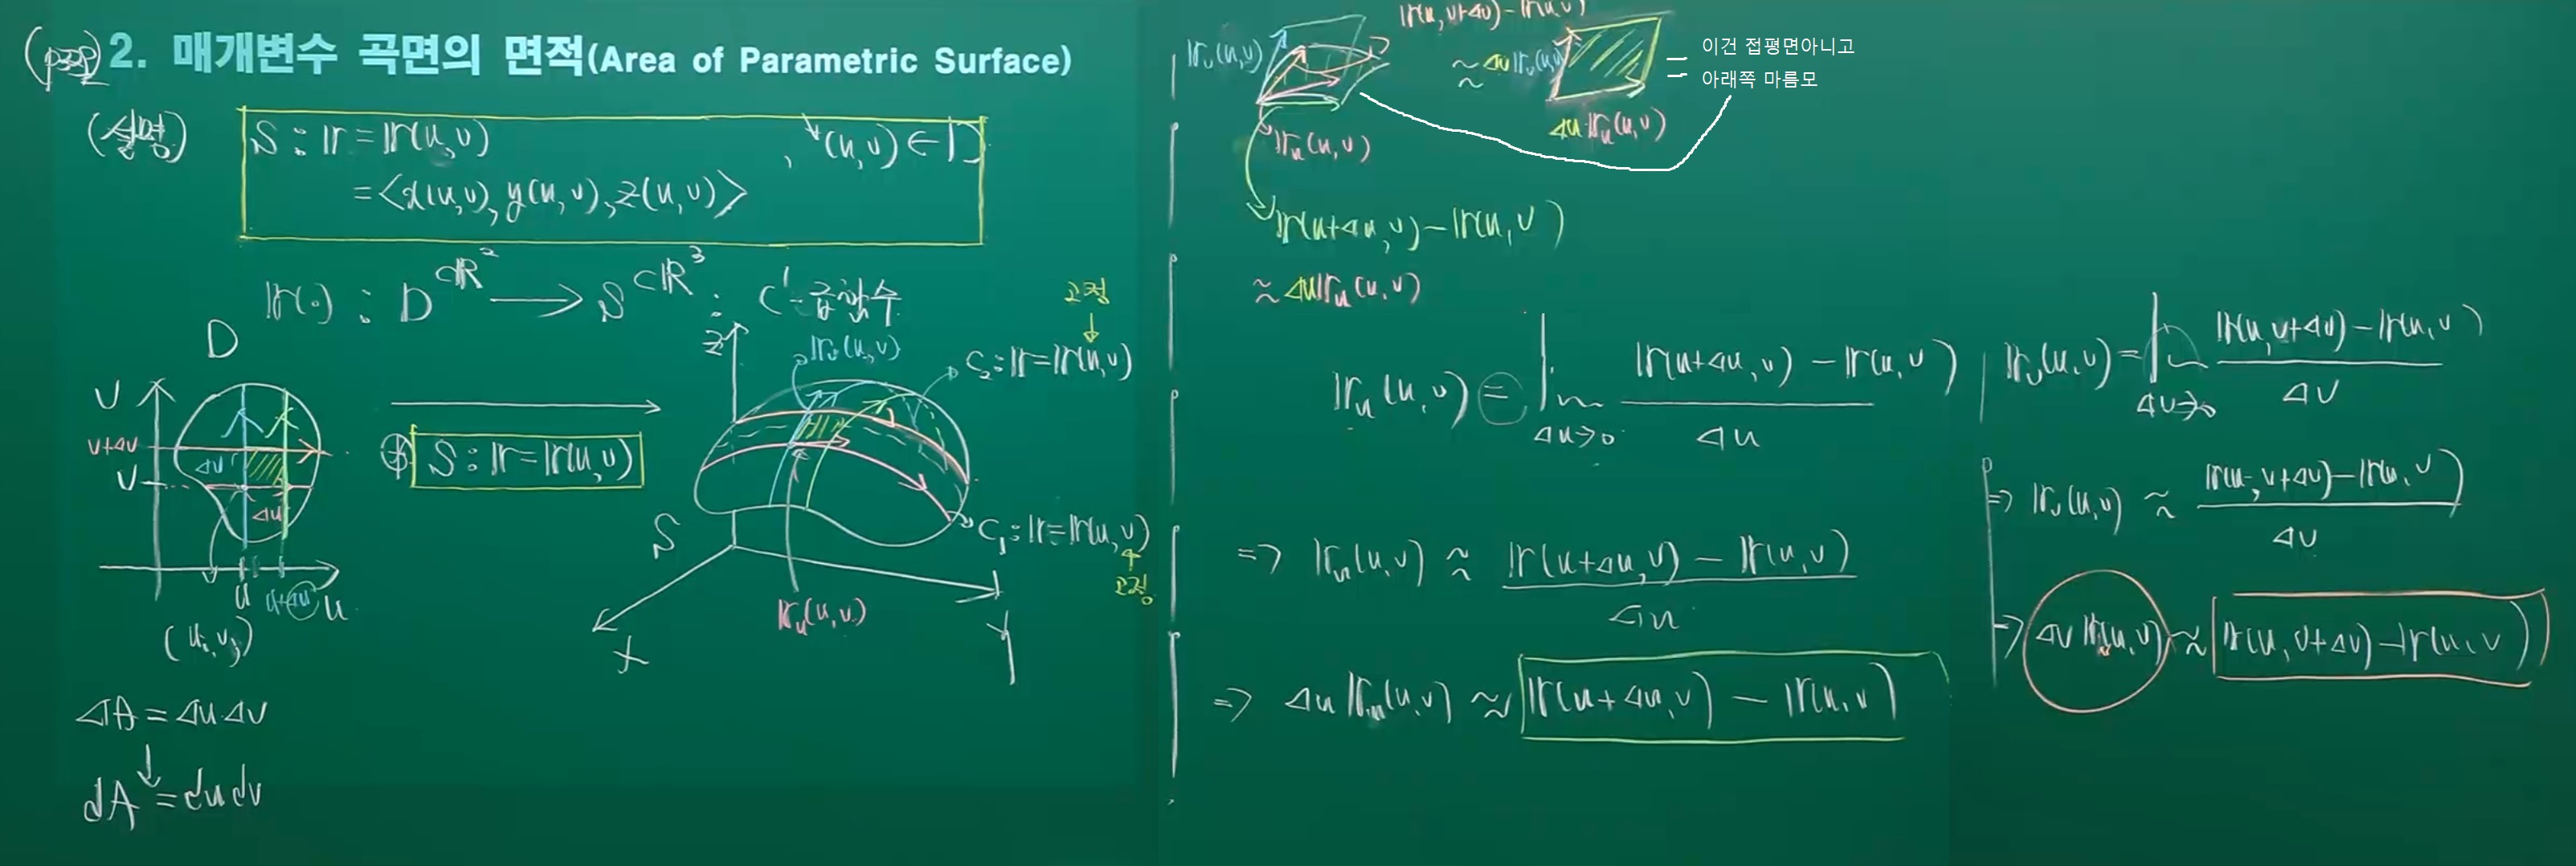 2. 매개변수 곡면의 면적(Area of Parametric Surface)
(설명)
S : r = r(u,v) , (u,v) ∈ D
= <x(u,v), y(u,v), z(u,v)>
r(·) : D ⊂ℝ² → S ⊂ℝ³ : C¹-급함수
D
V
v+Δv
v
Δv
Δu
u
u+Δu
u
(uᵢ,vⱼ)
ΔA = Δu·Δv
↓
dA = du dv
S : r = r(u,v)
Z
r_v(u,v)
고정
↓
C₂ : r = r(u,v)
S
C₁ : r = r(u,v)
↑
고정
r_u(u,v)
X
Y
r(u,v+Δv) - r(u,v)
r_v(u,v)
≈ Δv r_v(u,v)
이건 접평면아니고
아래쪽 마름모
r_u(u,v)
Δu r_u(u,v)
r(u+Δu,v) - r(u,v)
≈ Δu r_u(u,v)
r_u(u,v) = lim Δu→0 r(u+Δu,v) - r(u,v) / Δu
⇒ r_u(u,v) ≈ r(u+Δu,v) - r(u,v) / Δu
⇒ Δu r_u(u,v) ≈ r(u+Δu,v) - r(u,v)
r_v(u,v) = lim Δv→0 r(u,v+Δv) - r(u,v) / Δv
⇒ r_v(u,v) ≈ r(u,v+Δv) - r(u,v) / Δv
⇒ Δv r_v(u,v) ≈ r(u,v+Δv) - r(u,v)